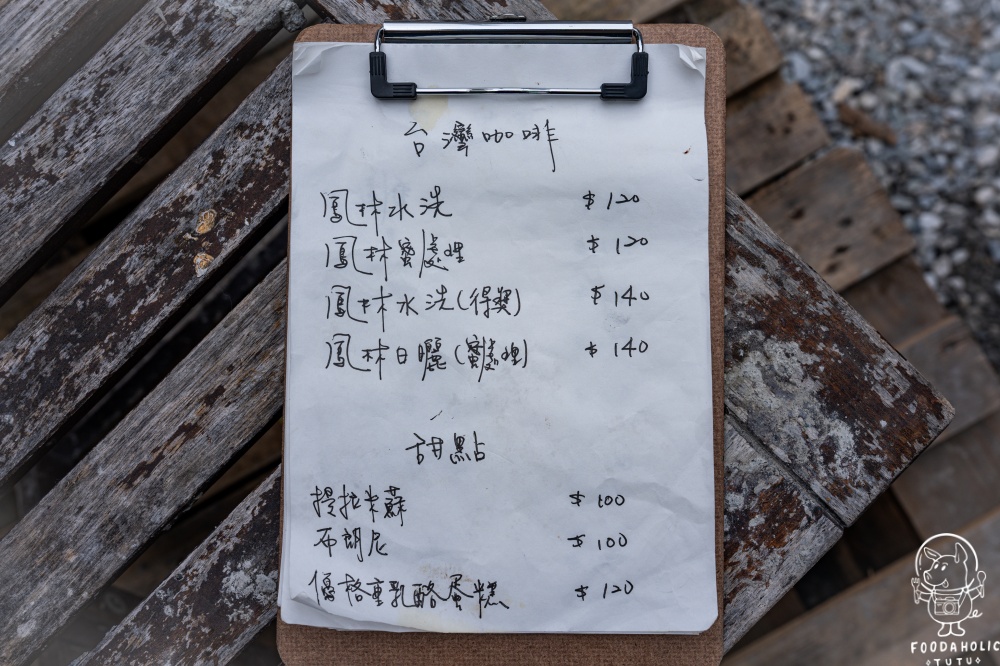 台灣咖啡
鳳林水洗 $120
鳳林蜜處理 $120
鳳林水洗(得獎) $140
鳳林日曬(蜜處理) $140
甜點
提拉米蘇 $100
布朗尼 $100
優格重乳酪蛋糕 $120
FOODAHOLIC
TUTU